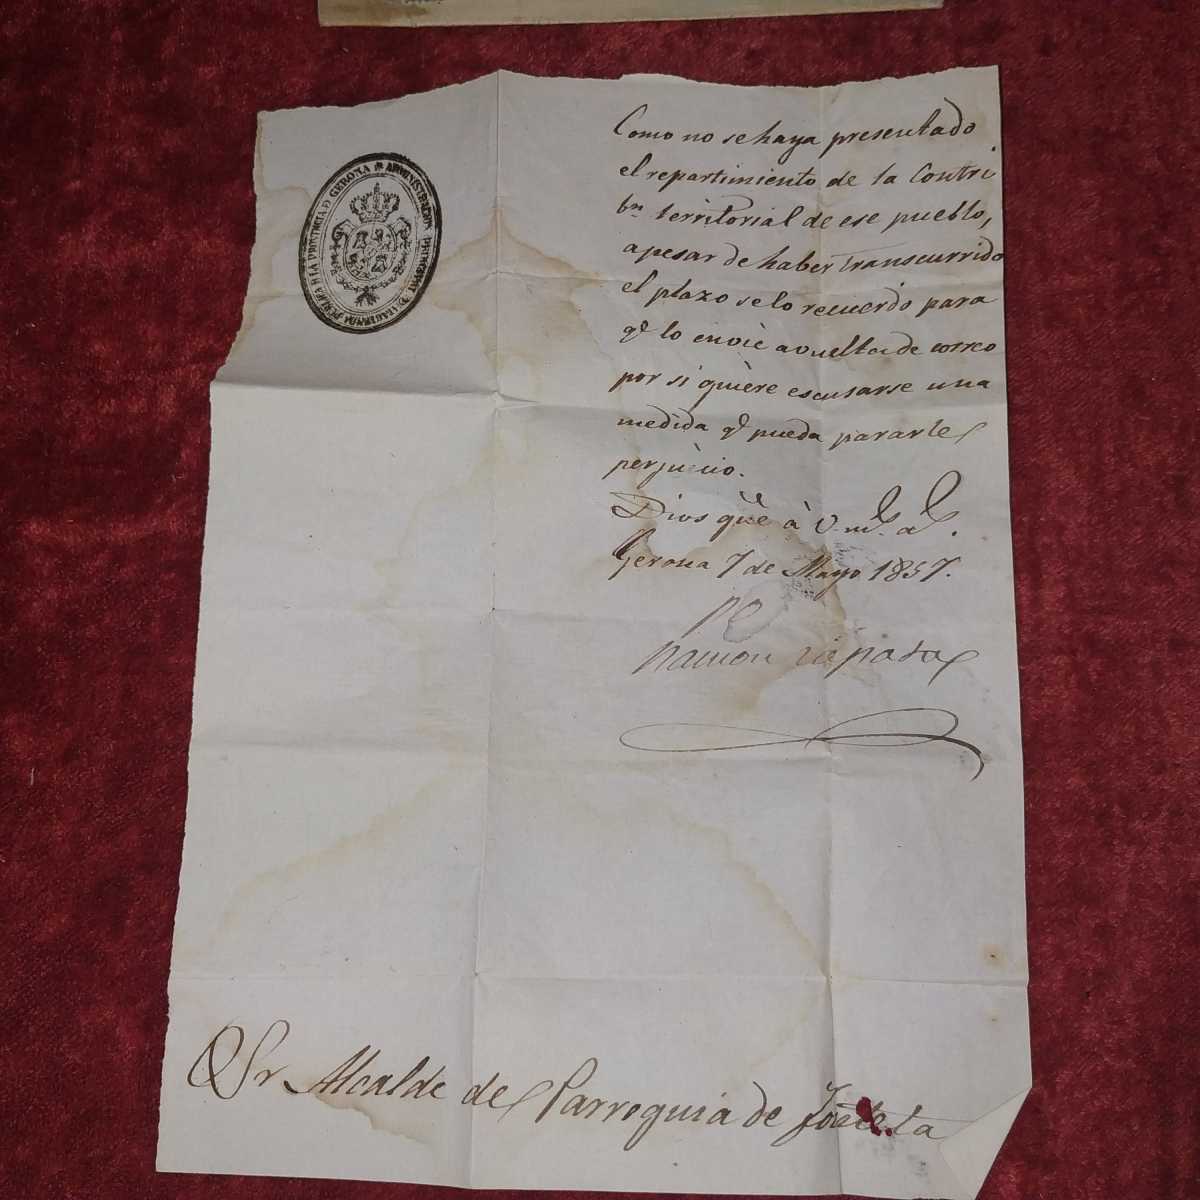 ADMINISTRACION PRINCIPAL DE HACIENDA PUBLICA DE LA PROVINCIA D GERONA
Como no se haya presentado
el repartimiento de la Contri
bn. territorial de ese pueblo,
apesar de haber transcurrido
el plazo se lo recuerdo para
qe lo envie a vuelta de correo
por si quiere escusarse una
medida qe pueda pararle
perjuicio.
Dios gue à V. ms. as.
Gerona 7 de Mayo 1857.
Ramon Zapata
Sr Alcalde de Parroquia de